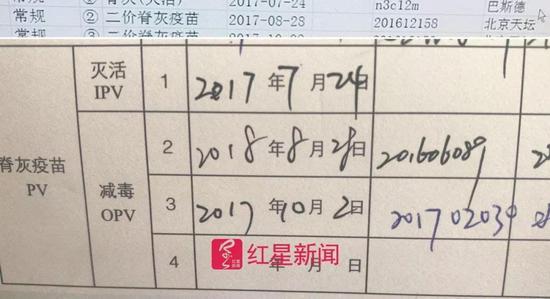 常规 ① 脊灰(灭活) 2017-07-24 n3c12m 巴斯德
常规 ② 二价脊灰疫苗 2017-08-28 201612158 北京天坛
灭活 IPV 1 2017年7月24日
脊灰疫苗 PV
减毒 OPV
2 2018年8月28日 201606089
3 2017年10月2日 201702030
4 年 月 日
红星新闻